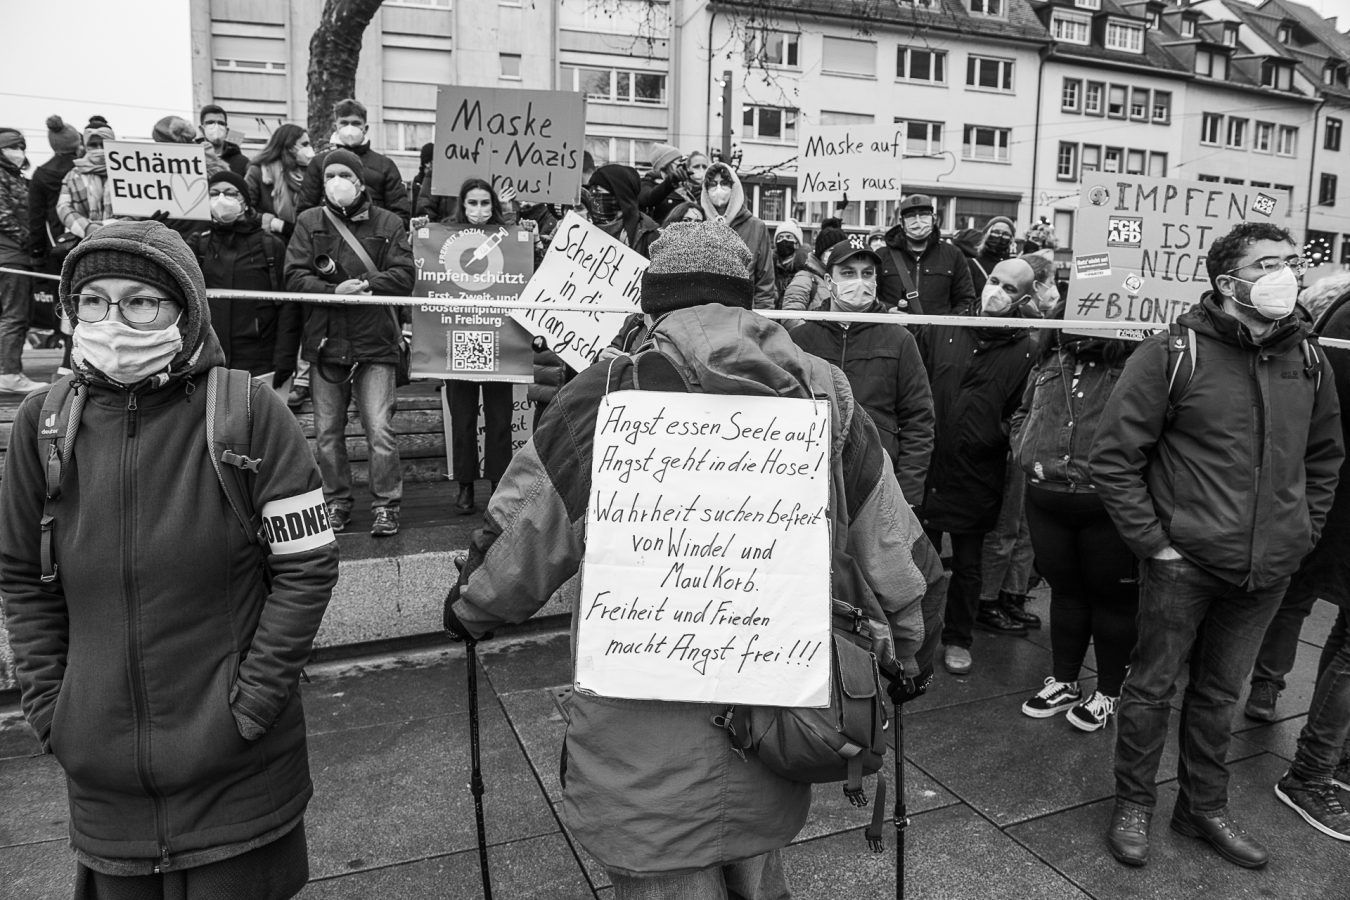 Schämt
Euch
Maske
auf - Nazis
raus!
Maske auf
Nazis raus.
FREIHEIT SOZIAL
Impfen schützt.
Erst- Zweit- und
Boosterimpfung
in Freiburg.
Scheißt ihr
in die
Klangsch
IMPFEN
IST
NICE
#BIONTE
FCK
AFD
deuter
ORDNER
Angst essen Seele auf!
Angst geht in die Hose!
Wahrheit suchen befreit
von Windel und
Maulkorb.
Freiheit und Frieden
macht Angst frei!!!